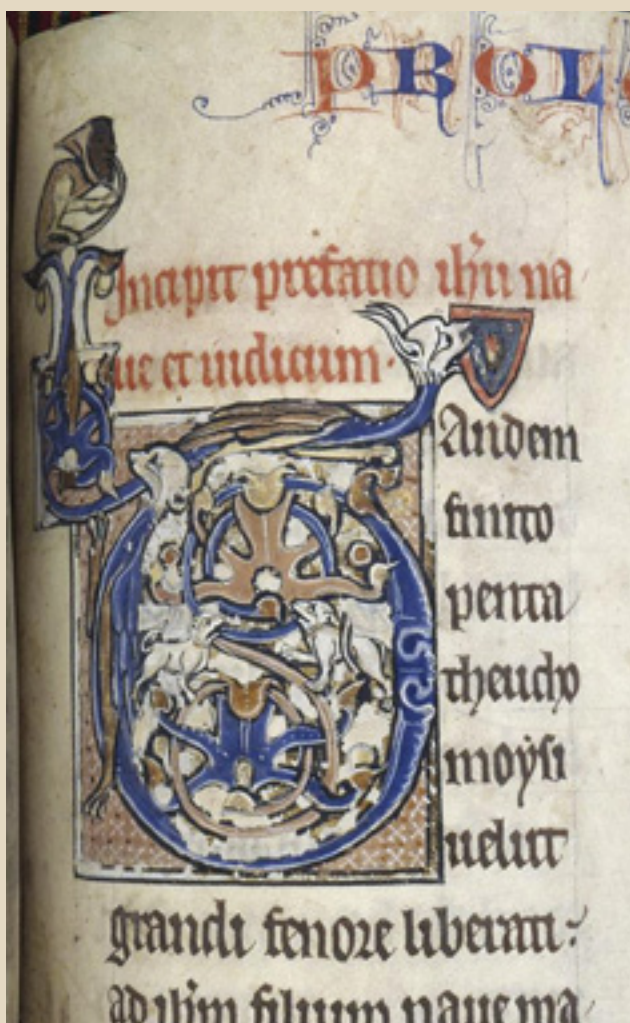 PROL
Incipit prefatio ihu na
ue et iudicum.
Andem
finito
penta
theucho
moysi
uelut
grandi fenore liberati:
ad ihm filium naue ma